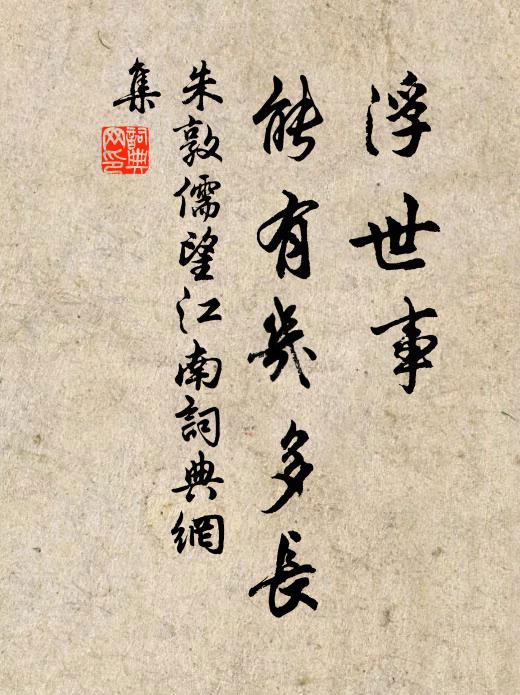 浮世事
能有幾多長
朱敦儒望江南詞典網
集
詞典
网印